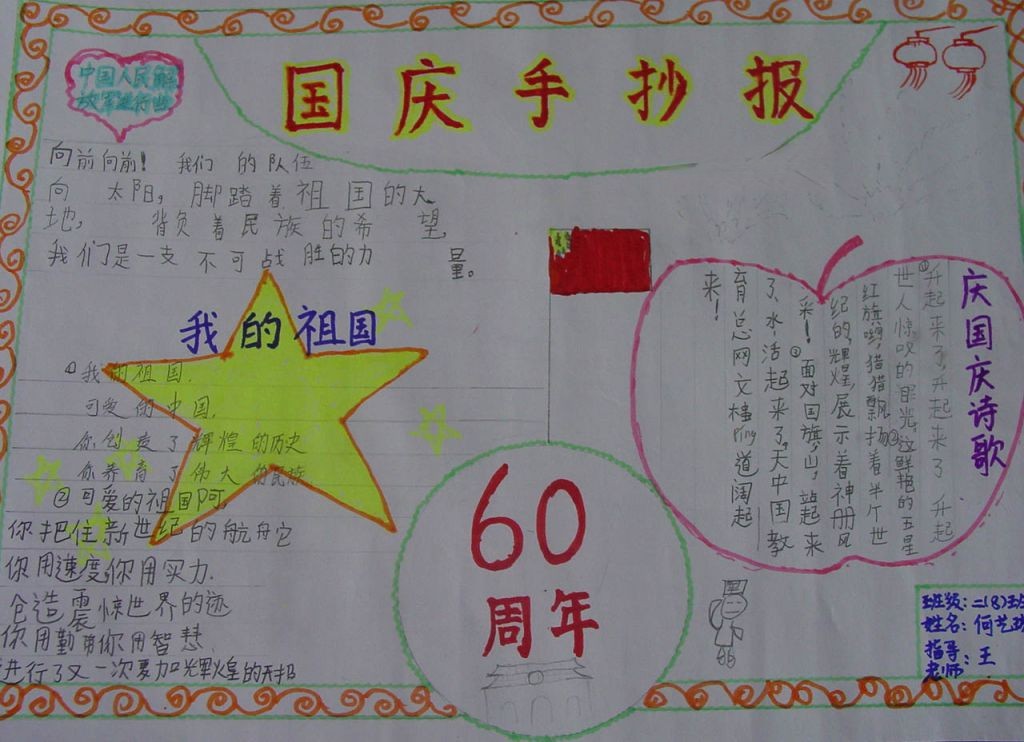 国庆手抄报
中国人民解
放军进行曲
向前向前！我们的队伍
向太阳，脚踏着祖国的大
地，背负着民族的希望，
我们是一支不可战胜的力量。
我的祖国
①我的祖国，
可爱的中国，
你创造了辉煌的历史
你养育了伟大的民族
②可爱的祖国阿，
你把住新世纪的航舟它
你用速度你用实力，
创造震惊世界的迹
你用勤带你用智慧，
进行了又一次更加辉煌的
60
周年
庆国庆诗歌
①升起来了，升起来了 升起
世人惊叹的眼光，这鲜艳的五星
红旗哟，猎猎飘扬着半个世
纪的辉煌，展示着神册风
采！③面对国旗，山，站起来
了，水，活起来了，天中国教
育总网文档ring道阔起
来！
班级：二(8)班
姓名：何艺
指导
老师：王